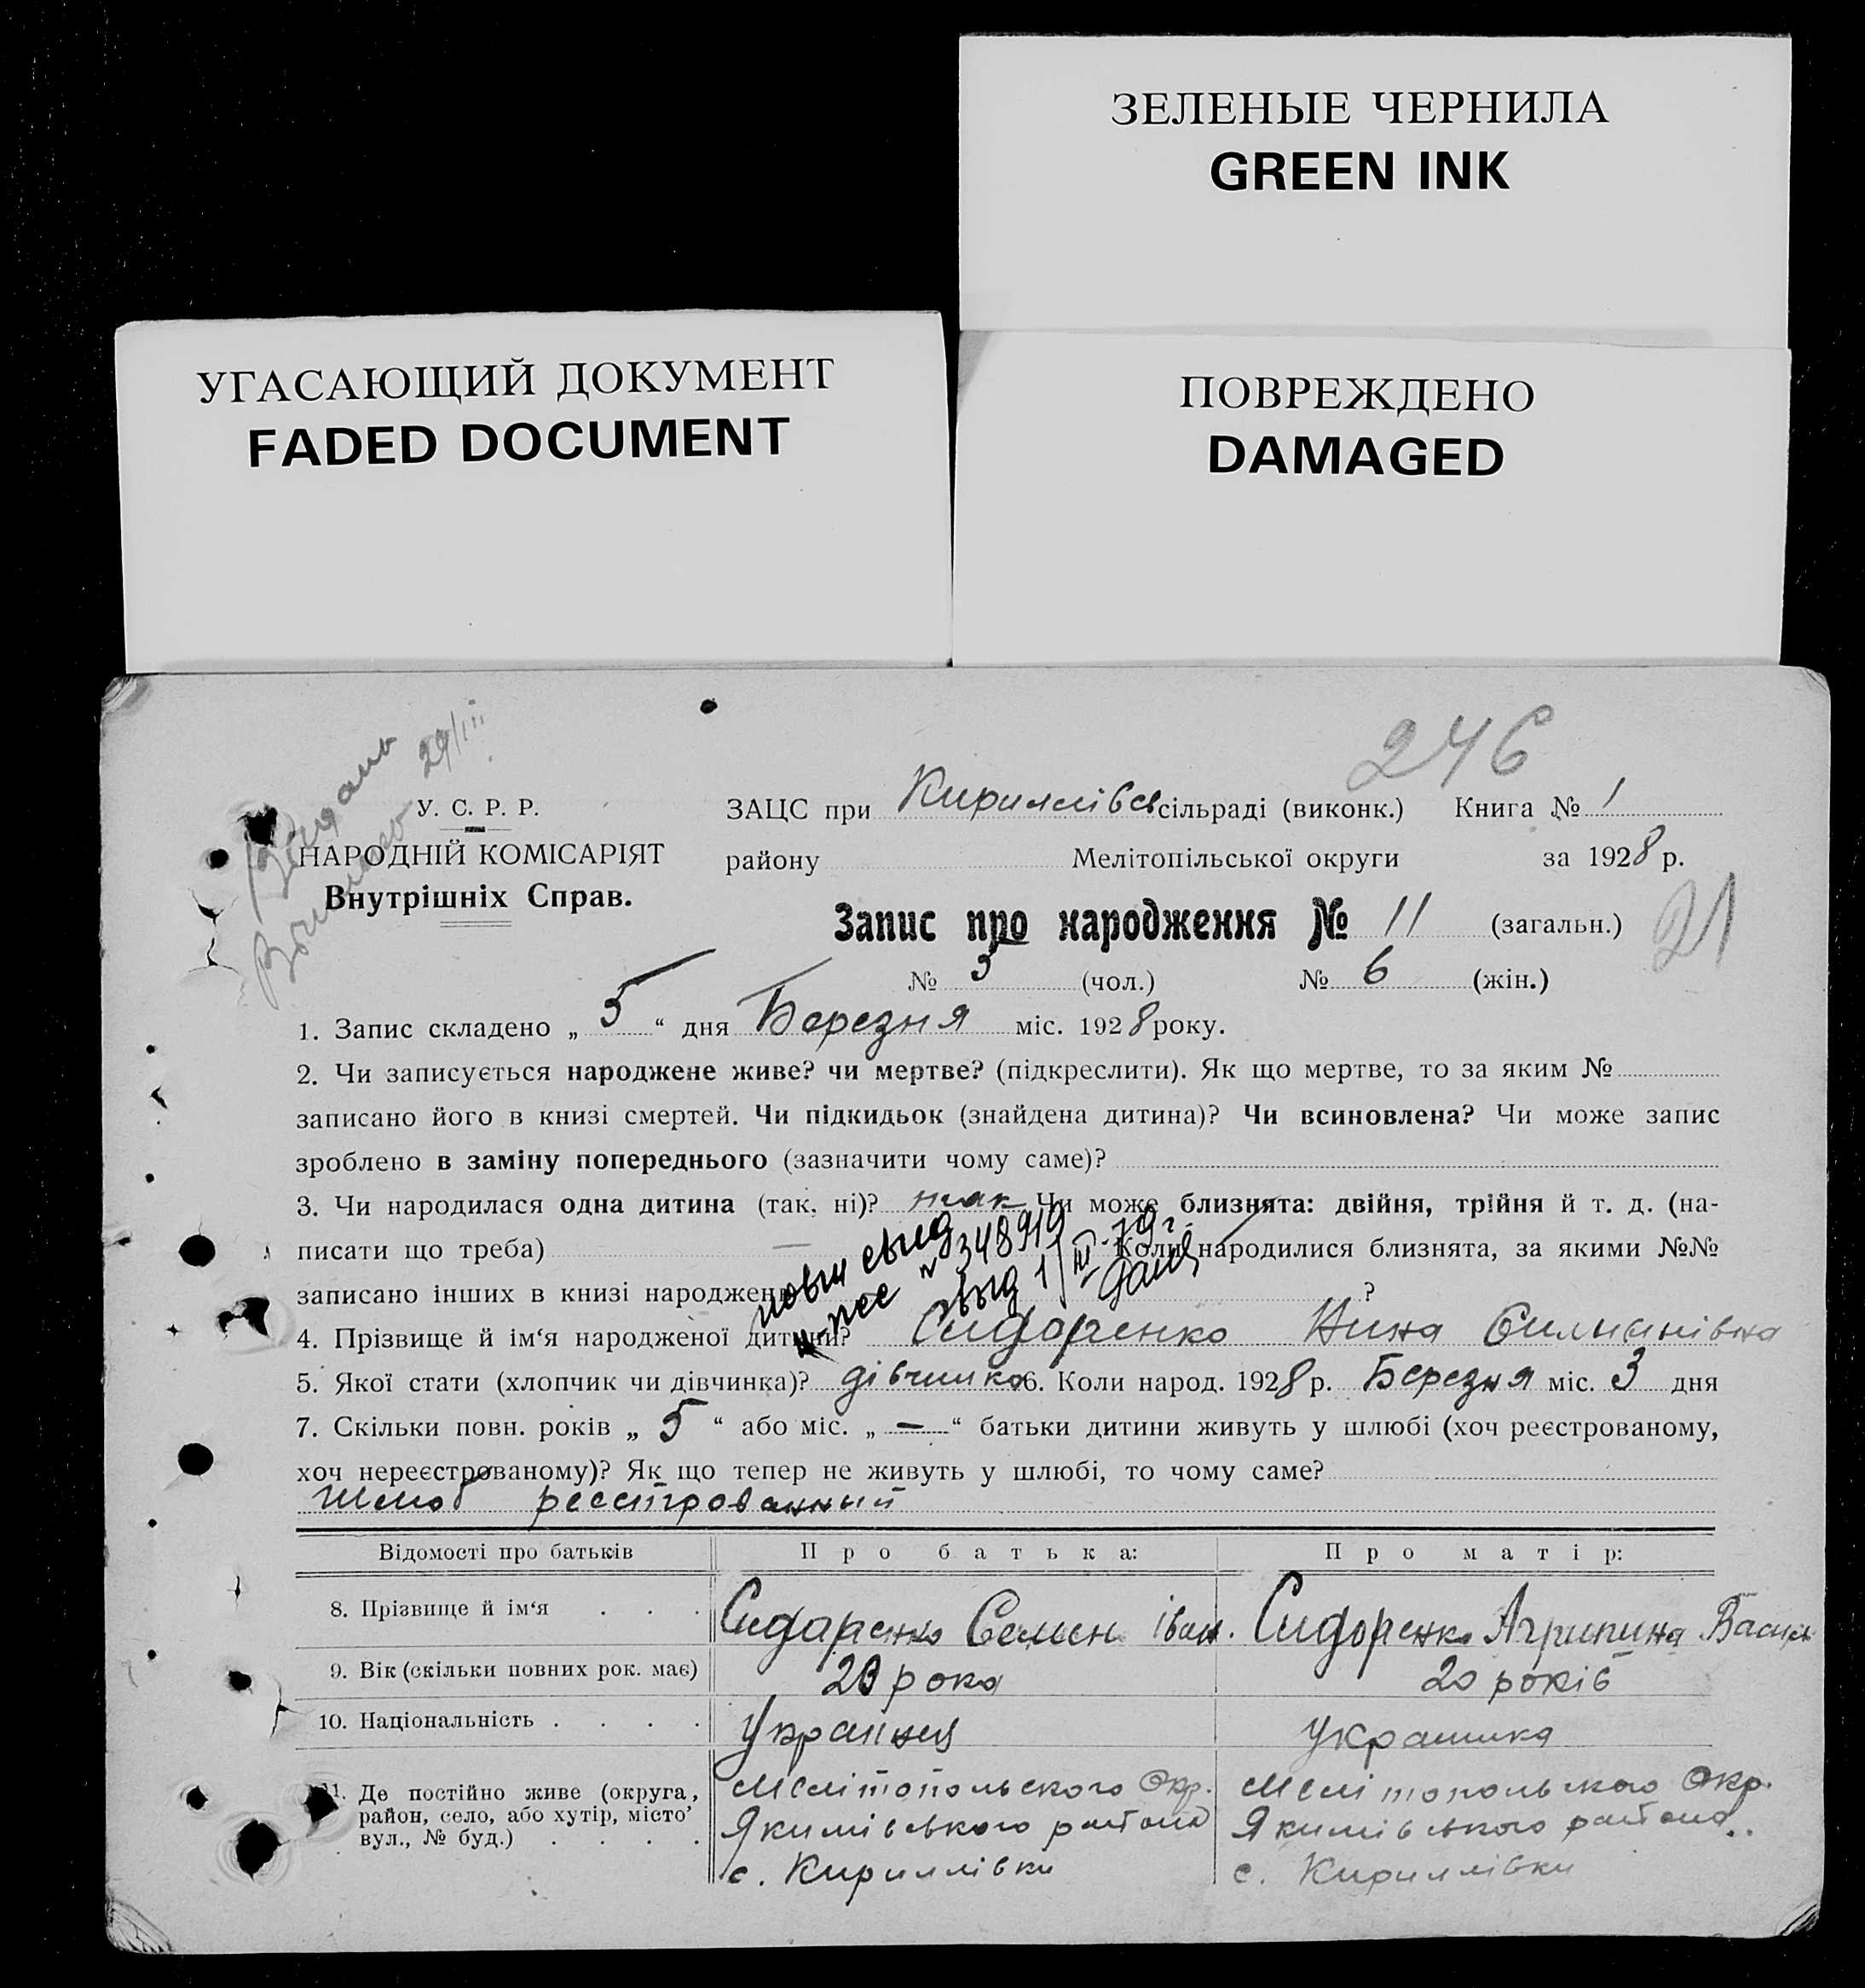 ЗЕЛЕНЫЕ ЧЕРНИЛА
GREEN INK
УГАСАЮЩИЙ ДОКУМЕНТ
FADED DOCUMENT
ПОВРЕЖДЕНО
DAMAGED
246
29/III
У. С. Р. Р.
НАРОДНІЙ КОМІСАРІЯТ
Внутрішніх Справ.
ЗАЦС при Кириллівсв сільраді (виконк.) Книга № 1
району Мелітопільської округи за 1928 р.
Запис про народження № 11 (загальн.) 21
№ 5 (чол.) № 6 (жін.)
1. Запис складено „ 5 “ дня Березня міс. 1928 року.
2. Чи записується народжене живе? чи мертве? (підкреслити). Як що мертве, то за яким №
записано його в книзі смертей. Чи підкидьок (знайдена дитина)? Чи всиновлена? Чи може запис
зроблено в заміну попереднього (зазначити чому саме)?
3. Чи народилася одна дитина (так, ні)? так Чи може близнята: двійня, трійня й т. д. (на-
писати що треба) — Коли народилися близнята, за якими №№
записано інших в книзі народжень ?
№ 348919
4. Прізвище й ім‘я народженої дитини? Сидоренко Нина
5. Якої стати (хлопчик чи дівчинка)? дівчинка 6. Коли народ. 1928 р. Березня міс. 3 дня
7. Скільки повн. років „ 5 “ або міс. „ — “ батьки дитини живуть у шлюбі (хоч реєстрованому,
хоч нереєстрованому)? Як що тепер не живуть у шлюбі, то чому саме?
Шлюб реєстрованный
Відомості про батьків Про батька: Про матір:
8. Прізвище й ім‘я . . . Сидаренко Семен Іван. Сидоренко Агрипина Василь
9. Вік (скільки повних рок. має) 23 рока 20 років
10. Національність . . . . Українец Украинка
11. Де постійно живе (округа, Мелітопольского Окр. Мелітопольского Окр.
район, село, або хутір, місто’ Якимівського района Якимівського района..
вул., № буд.) . . . . с. Кириллівки с. Кириллівки